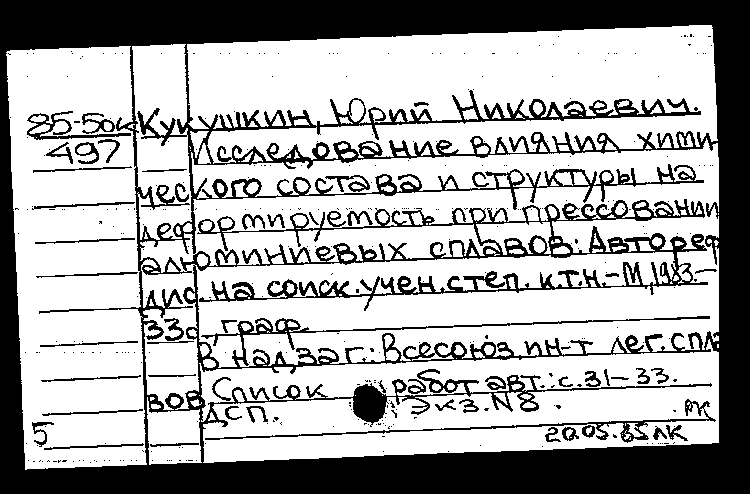 85-5ок Кукушкин, Юрий Николаевич.
497 Исследование влияния хими-
ческого состава и структуры на
деформируемость при прессовании
алюминиевых сплавов: Автореф
дис. на соиск. учен. степ. к.т.н. - М, 1983. -
33с., граф.
В надзаг.: Всесоюз. ин-т лег. спла
вов. Список работ авт.: с. 31-33.
ДСП. Экз. N 8.
РК
5 20.05.85 ЛК